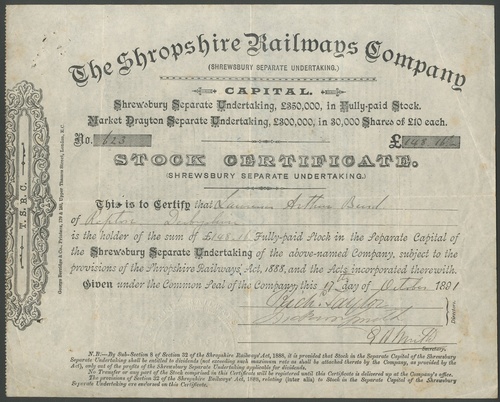 The Shropshire Railways Company
(SHREWSBURY SEPARATE UNDERTAKING.)
CAPITAL.
Shrewsbury Separate Undertaking, £350,000, in Fully-paid Stock.
Market Drayton Separate Undertaking, £300,000, in 30,000 Shares of £10 each.
No. 623 £148.16/-
STOCK CERTIFICATE.
(SHREWSBURY SEPARATE UNDERTAKING.)
This is to Certify that Laurence Arthur
of Repton Derbyshire
is the holder of the sum of £148.16 Fully-paid Stock in the Separate Capital of
the Shrewsbury Separate Undertaking of the above-named Company, subject to the
provisions of the Shropshire Railways' Act, 1888, and the Acts incorporated therewith.
Given under the Common Seal of the Company, this day of October 1891
Rich. Taylor
Smith
Directors.
Secretary.
N.B.—By Sub-Section 8 of Section 32 of the Shropshire Railways' Act, 1888, it is provided that Stock in the Separate Capital of the Shrewsbury
Separate Undertaking shall be entitled to dividends (not exceeding such maximum rate as shall be attached thereto by the Company, as provided by the
Act), only out of the profits of the Shrewsbury Separate Undertaking applicable for dividends.
No Transfer of any part of the Stock comprised in this Certificate will be registered until this Certificate is delivered up at the Company's office.
The provisions of Section 32 of the Shropshire Railways' Act, 1888, relating (inter alia) to Stock in the Separate Capital of the Shrewsbury
Separate Undertaking are endorsed on this Certificate.
T. S. R. C.
Upper Thames Street, London, E.C.